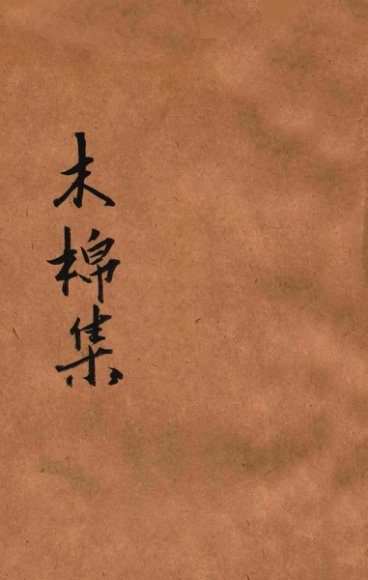 木棉集